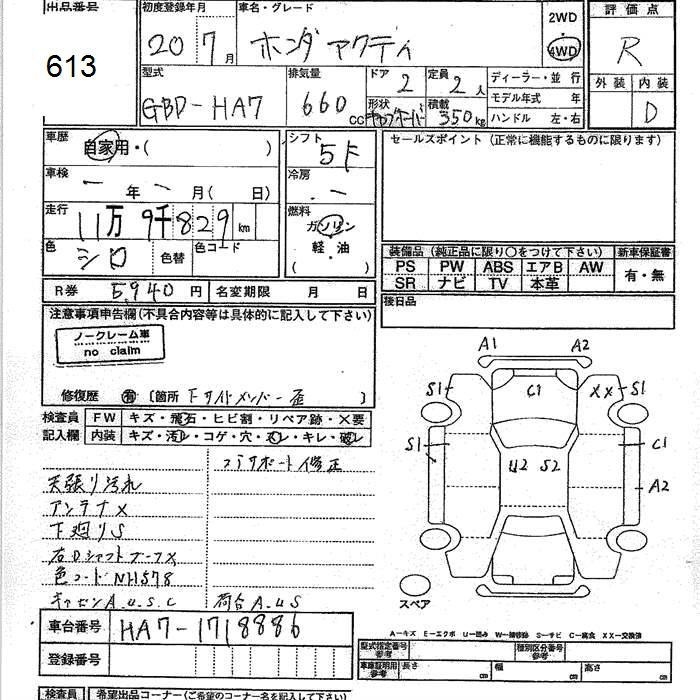 出品番号
613
初度登録年月 20 7月
車名・グレード ホンダ アクティ
2WD
・
4WD
評価点
R
外装 内装
D
型式 GBD-HA7
排気量 660 CC
ドア 2
定員 2人
形状
積載 350kg
ディーラー・並 行
モデル年式 年
ハンドル 左・右
車歴 自家用・( )
シフト 5F
セールスポイント (正常に機能するものに限ります)
車検 一 年 一 月( 日)
冷房 一
走行 11万9千829km
燃料 ガソリン
軽・油
( )
色 シロ
色替
色コード
装備品 (純正品に限り○をつけて下さい)
新車保証書
PS PW ABS エアB AW
SR ナビ TV 本革
有・無
R券 5,940円
名変期限 月 日
後日品
注意事項申告欄(不具合内容等は具体的に記入して下さい)
ノークレーム車
no claim
修復歴 有 〔箇所 下サイドメンバー歪 〕
検査員
記入欄
FW キズ・飛石・ヒビ割・リペア跡・×要
内装 キズ・汚レ・コゲ・穴・スレ・キレ・破レ
コアサポート修正
天張り汚れ
アンテナX
下廻りS
右DシャフトブーツX
色コードNH578
キャビンA.U.S.C
荷台A.U.S
A1 A2
S1 C1 XX S1
S1 U2 S2 C1
A2
スペア
A-キズ E-エクボ U-凹み W-補修跡 S-サビ C-腐食 XX-交換済
車台番号 HA7-1718886
登録番号
型式指定番号
参考
種別区分番号
参考
車庫証明用
参考
長さ cm 幅 cm 高さ cm
検査員 希望出品コーナー(ご希望のコーナー名を記入して下さい)